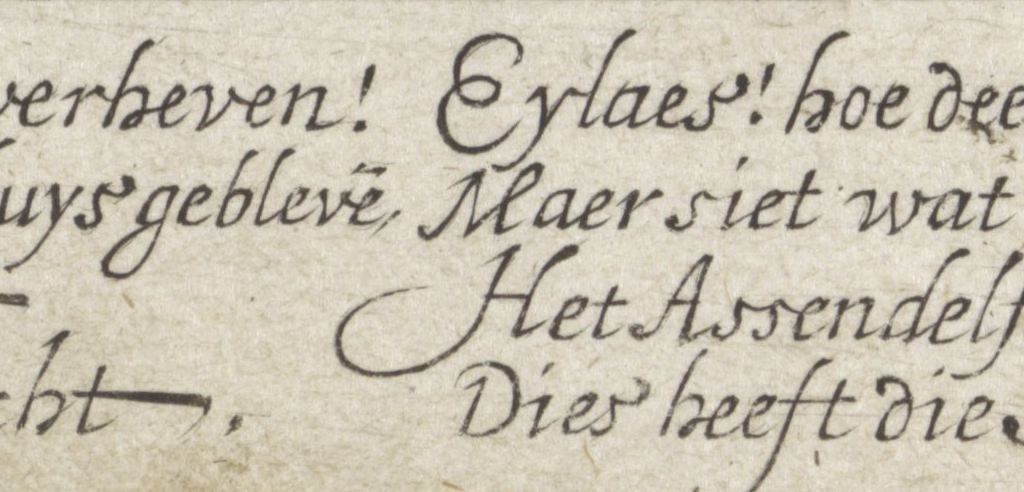 verheven! Eylaes! hoe dee
uys geblevē, Maer siet wat
Het Assendelf
cht. Dies heeft die